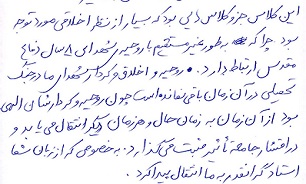 این کلاس جزو کلاس هایی بود که بسیار از نظر اخلاقی مورد توجه
بود چرا که به طور غیر مستقیم با روحیه رشهدای ۸ سال دفاع
مقدس ارتباط دارد. روحیه و اخلاق و کردار شهدا را ما در جنگ
تحمیلی در آن زمان باقی نمانده است چون روحیه و کردارشان الهی
بود از آن زمان به زمان حال و هر زمان دیگر انتقال می یابد و
در اقشار جامعه تأثیر مثبت می گذارد. به خصوص که از زبان شما
استاد گرانقدر به ما انتقال پیدا کرد.